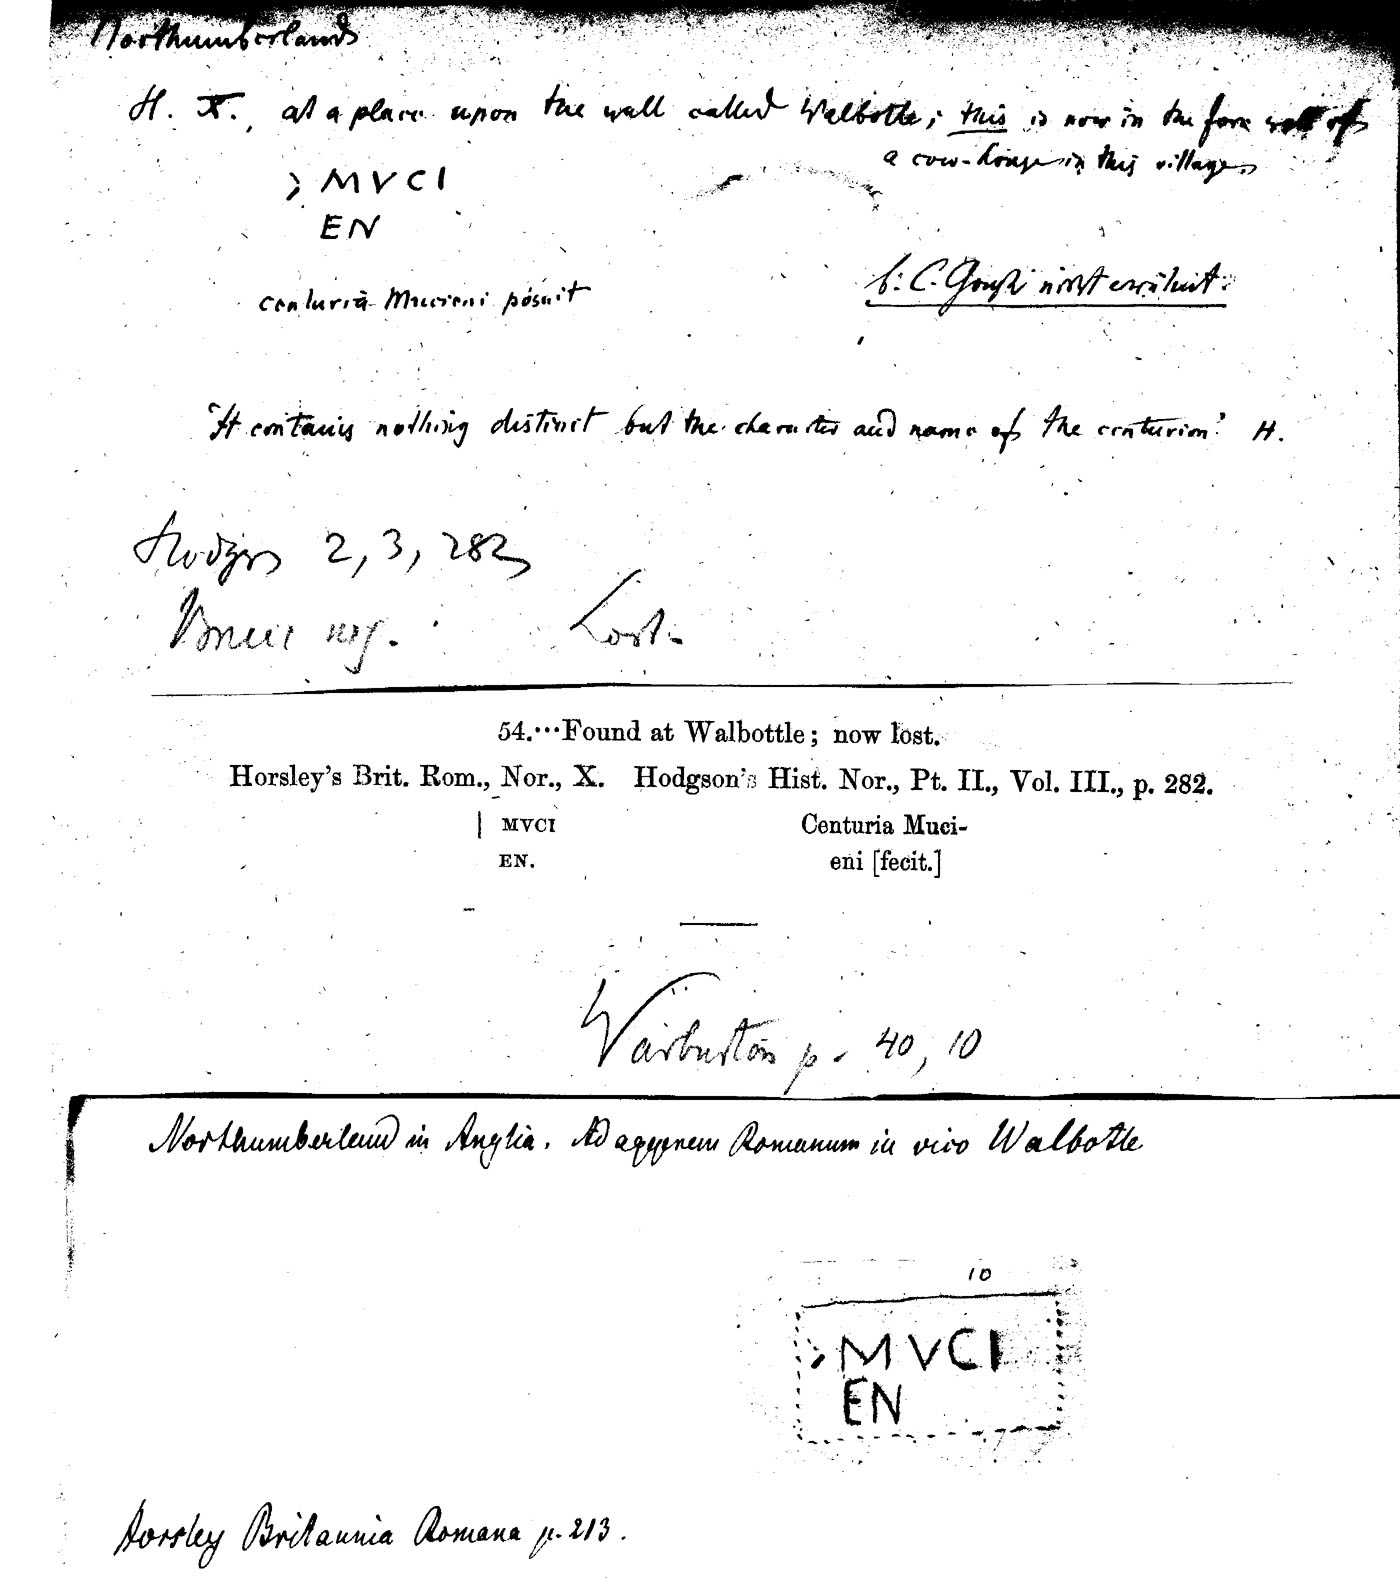 Northumberland
H. X., at a place upon the wall called Walbottle; this is now in the fore wall of
a cow-house in this village.
> MVCI
EN
centuria Mucieni posuit
b: C.
"It contains nothing distinct but the character and name of the centurion" H.
Hodgson 2, 3, 282
Bruce neg. Lost.
54.···Found at Walbottle; now lost.
Horsley's Brit. Rom., Nor., X. Hodgson's Hist. Nor., Pt. II., Vol. III., p. 282.
| MVCI Centuria Muci-
EN. eni [fecit.]
Warburton p. 40, 10
Northumberland in Anglia. Ad aggerem Romanum in vico Walbotle
10
> MVCI
EN
Horsley Britannia Romana p. 213.